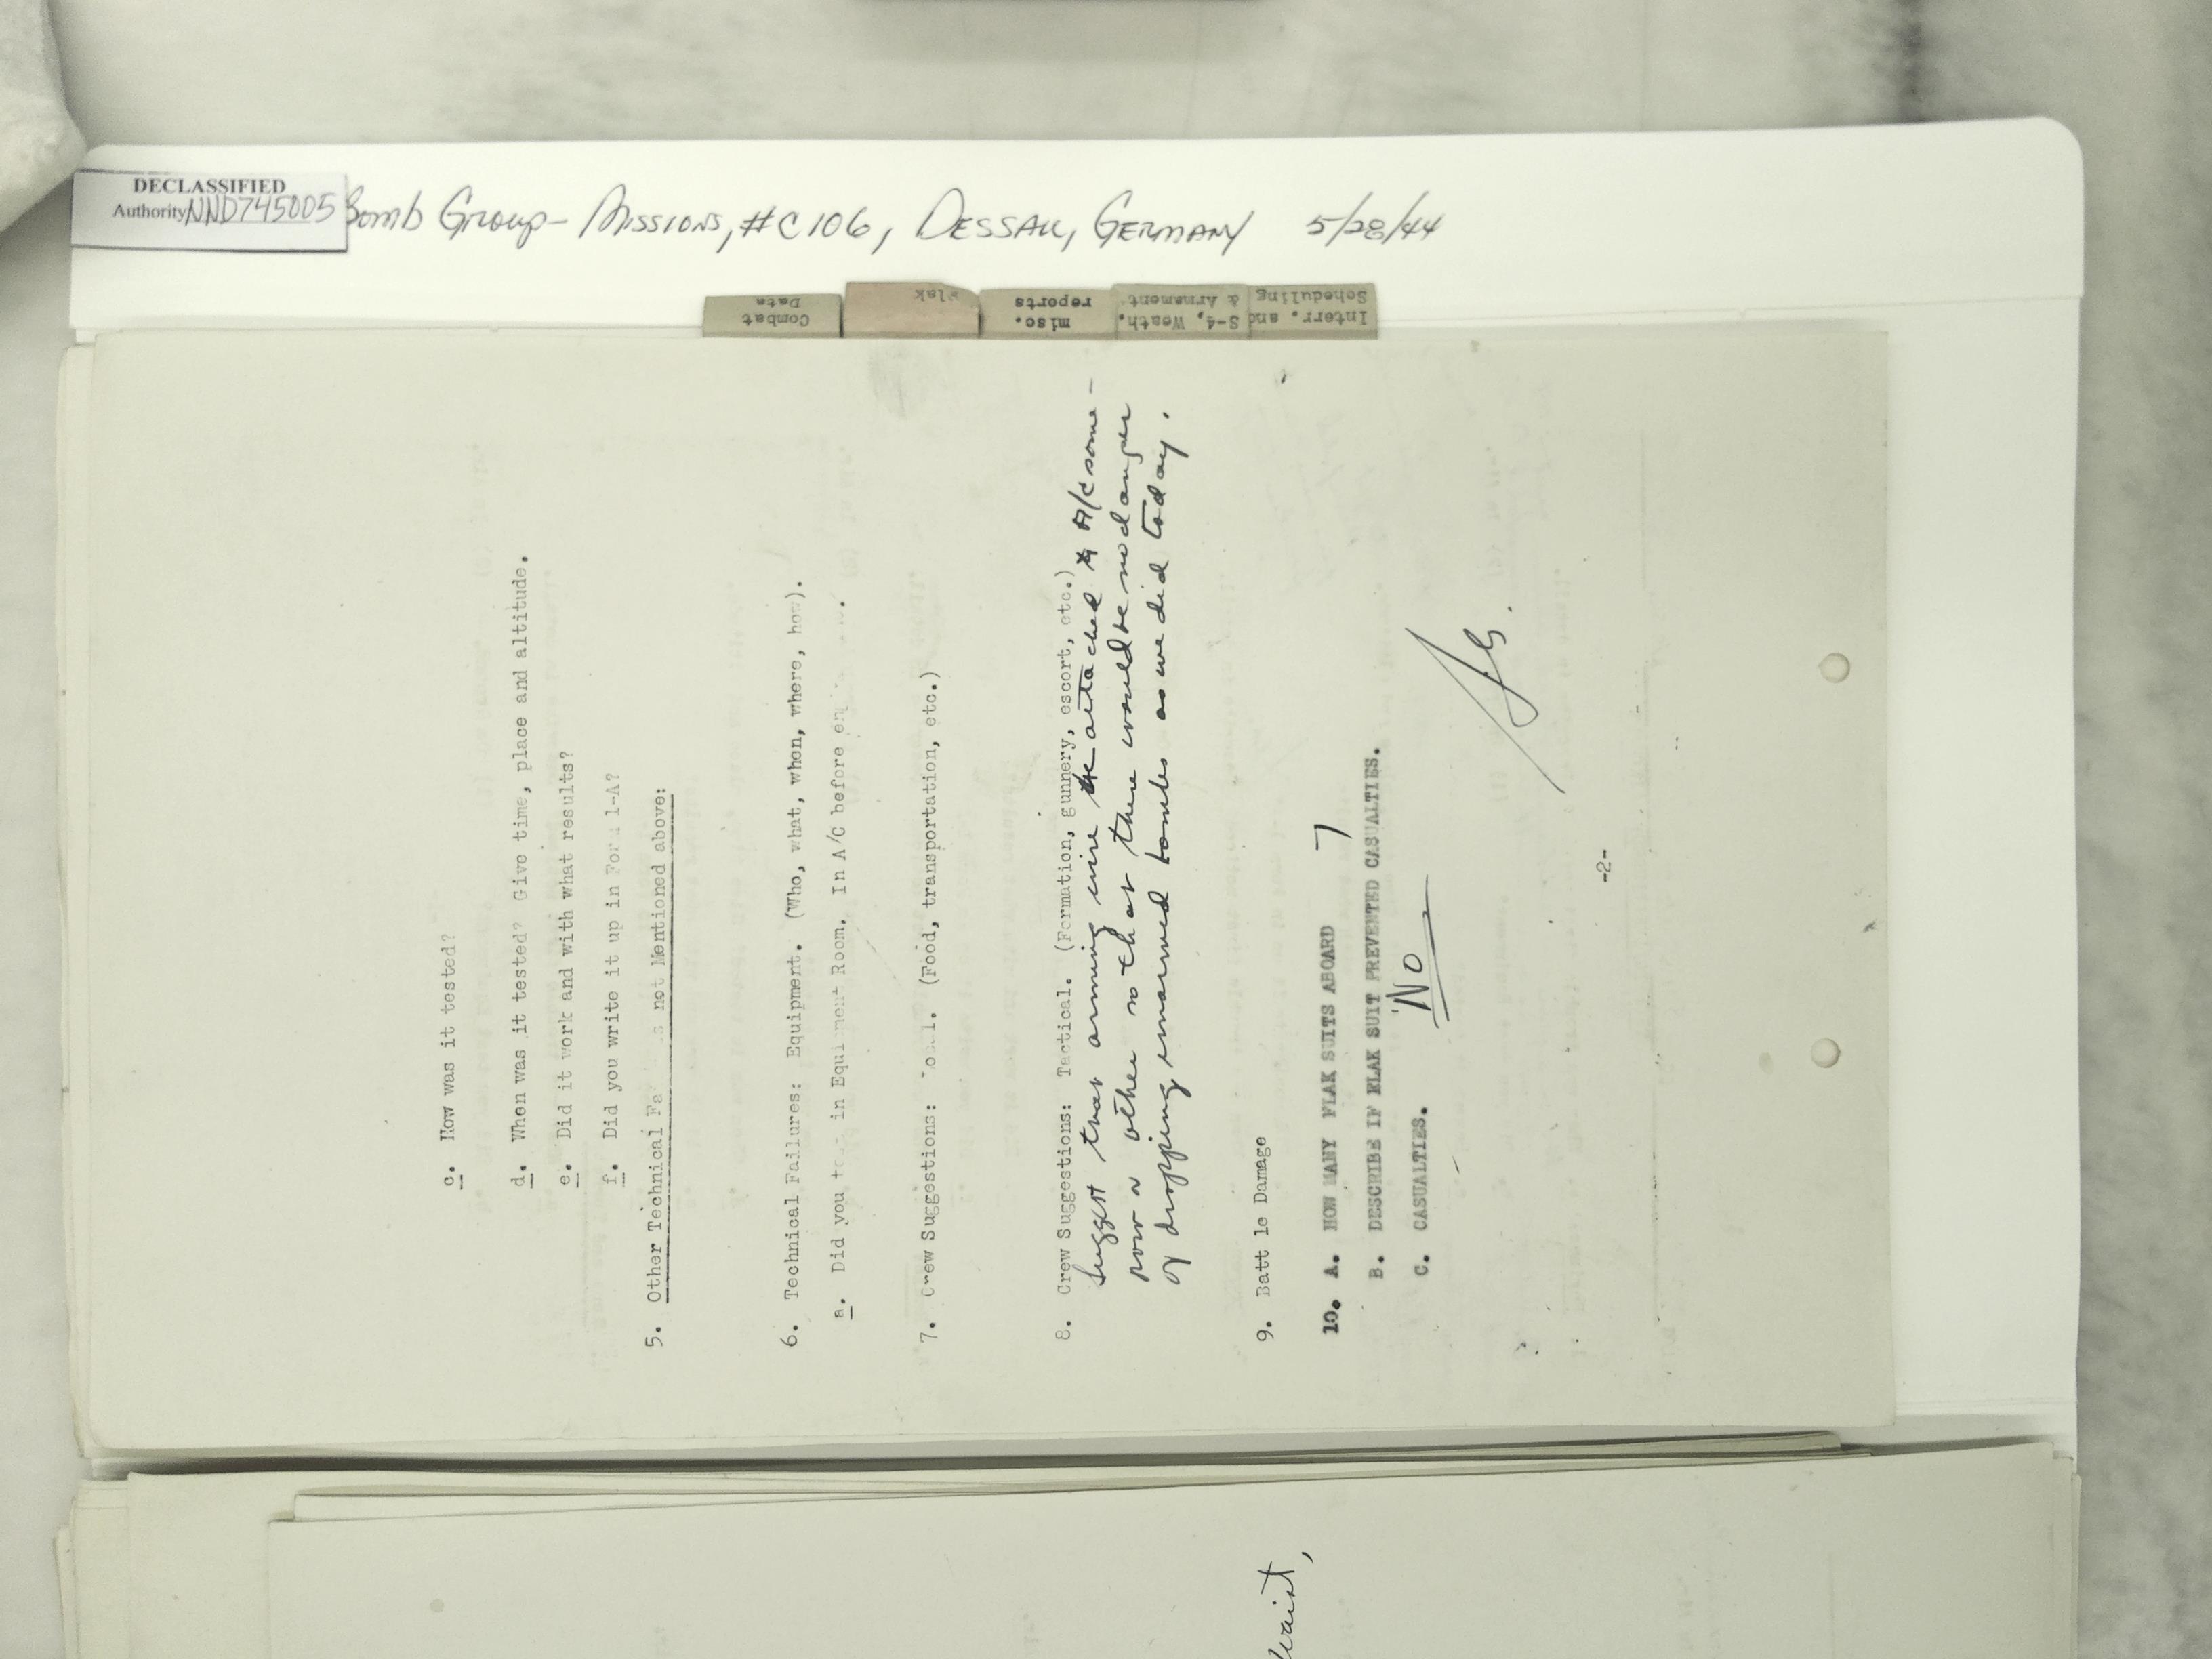 DECLASSIFIED
Authority NND745005
Bomb Group - Missions, #C106, Dessau, Germany 5/28/44
Combat
Data
Flak
misc.
reports
S-4, Weath.
& Armament
Interr. and
Scheduling
c. How was it tested?
d. When was it tested? Give time, place and altitude.
e. Did it work and with what results?
f. Did you write it up in Form 1-A?
5. Other Technical not Mentioned above:
6. Technical Failures: Equipment. (Who, what, when, where, how).
a. Did you in Equipment Room. In A/C before
7. Crew Suggestions: (Food, transportation, etc.)
8. Crew Suggestions: Tactical. (Formation, gunnery, escort, etc.)
Suggest that arming wire be attached to A/C some-
how or other so that there would be no danger
of dropping unarmed bombs as we did today.
9. Batt le Damage
10. A. HOW MANY FLAK SUITS ABOARD 7
B. DESCRIBE IF FLAK SUIT PREVENTED CASUALTIES.
No
C. CASUALTIES.
-2-